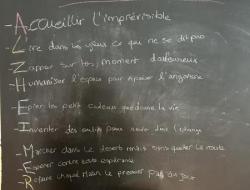 - Accueillir l'imprévisible
- Lire dans les yeux ce que ne se dit pas
- Zapper sur les moment douloureux
- Humaniser l'espace pour apaiser l'angoisse
- Epier les petit cadeaux que donne la vie
- Inventer des outils pour
- Marcher dans le désert sans quitter la route
- Espérer contre toute espérance
- Refaire chaque matin le premier pas du jour